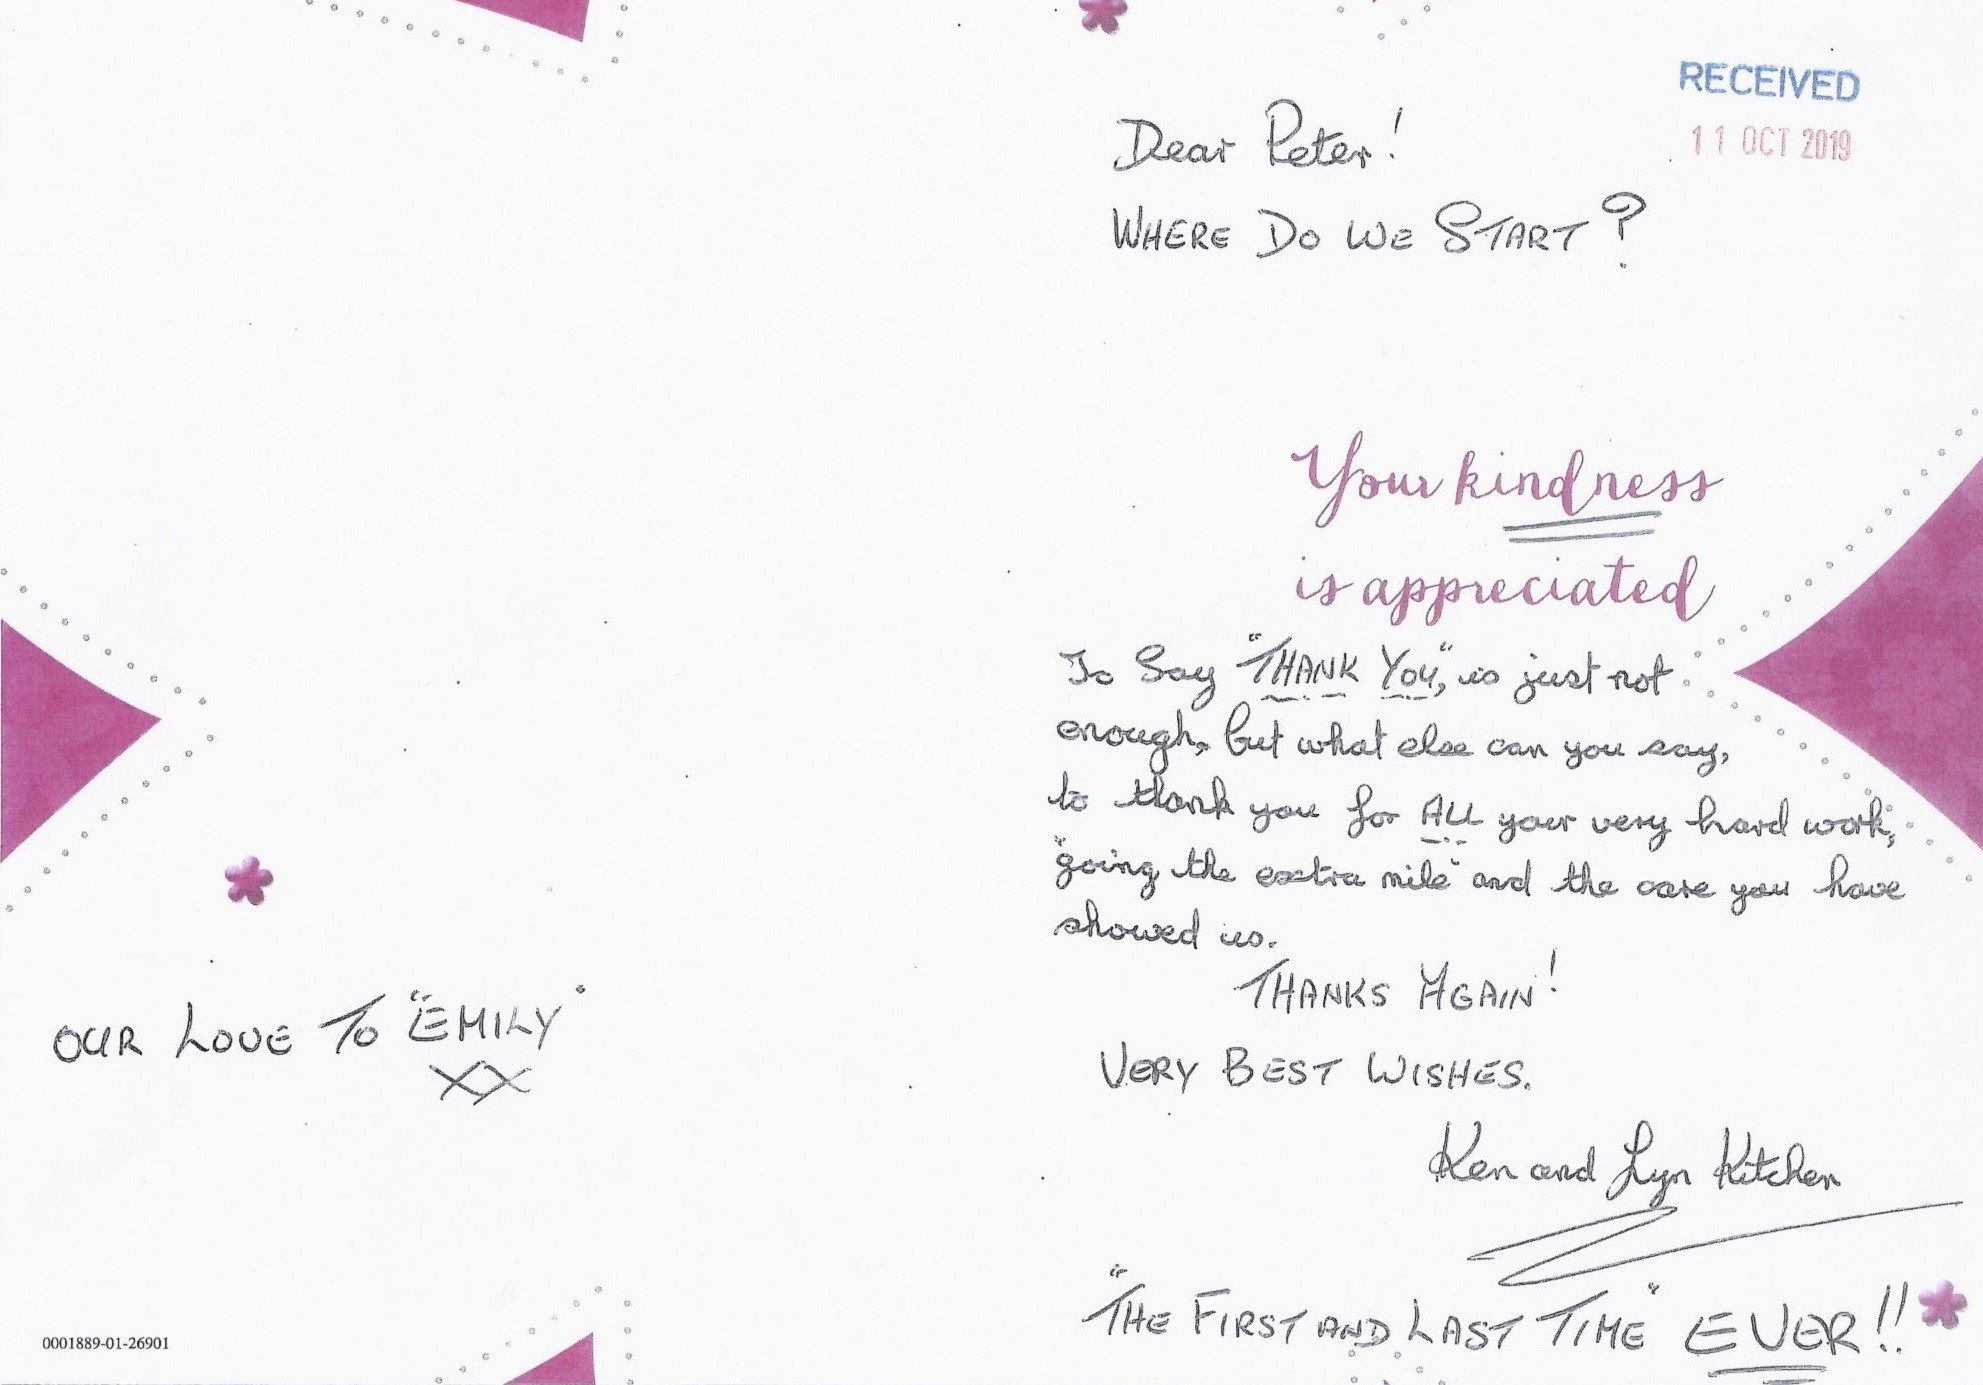 OUR LOVE TO "EMILY"
XX
0001889-01-26901
RECEIVED
11 OCT 2019
Dear Peter!
WHERE DO WE START?
Your kindness
is appreciated
To Say "THANK YOU", is just not
enough, but what else can you say,
to thank you for ALL your very hard work,
"going the extra mile" and the care you have
showed us.
THANKS AGAIN!
VERY BEST WISHES.
Ken and Lyn Kitchen
"THE FIRST AND LAST TIME" EVER!!